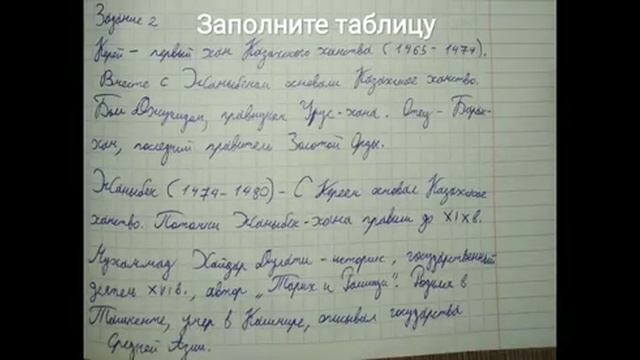 Заполните таблицу
Задание 2
Керей – первый хан Казахского ханства (1465 - 1474).
Вместе с Жаныбеком основали Казахское ханство.
Был Джучидом, правнуком Урус-хана. Отец – Барак-
хан, последний правитель Золотой Орды.
Жаныбек (1474 – 1480) – С Кереем основал Казахское
ханство. Потомки Жаныбек-хана правили до XIX в.
Мухаммад Хайдар Дулати – историк, государственный
деятель XVI в., автор „Тарих и Рашиди". Родился в
Ташкенте, умер в Кашмире, описывал государства
Средней Азии.